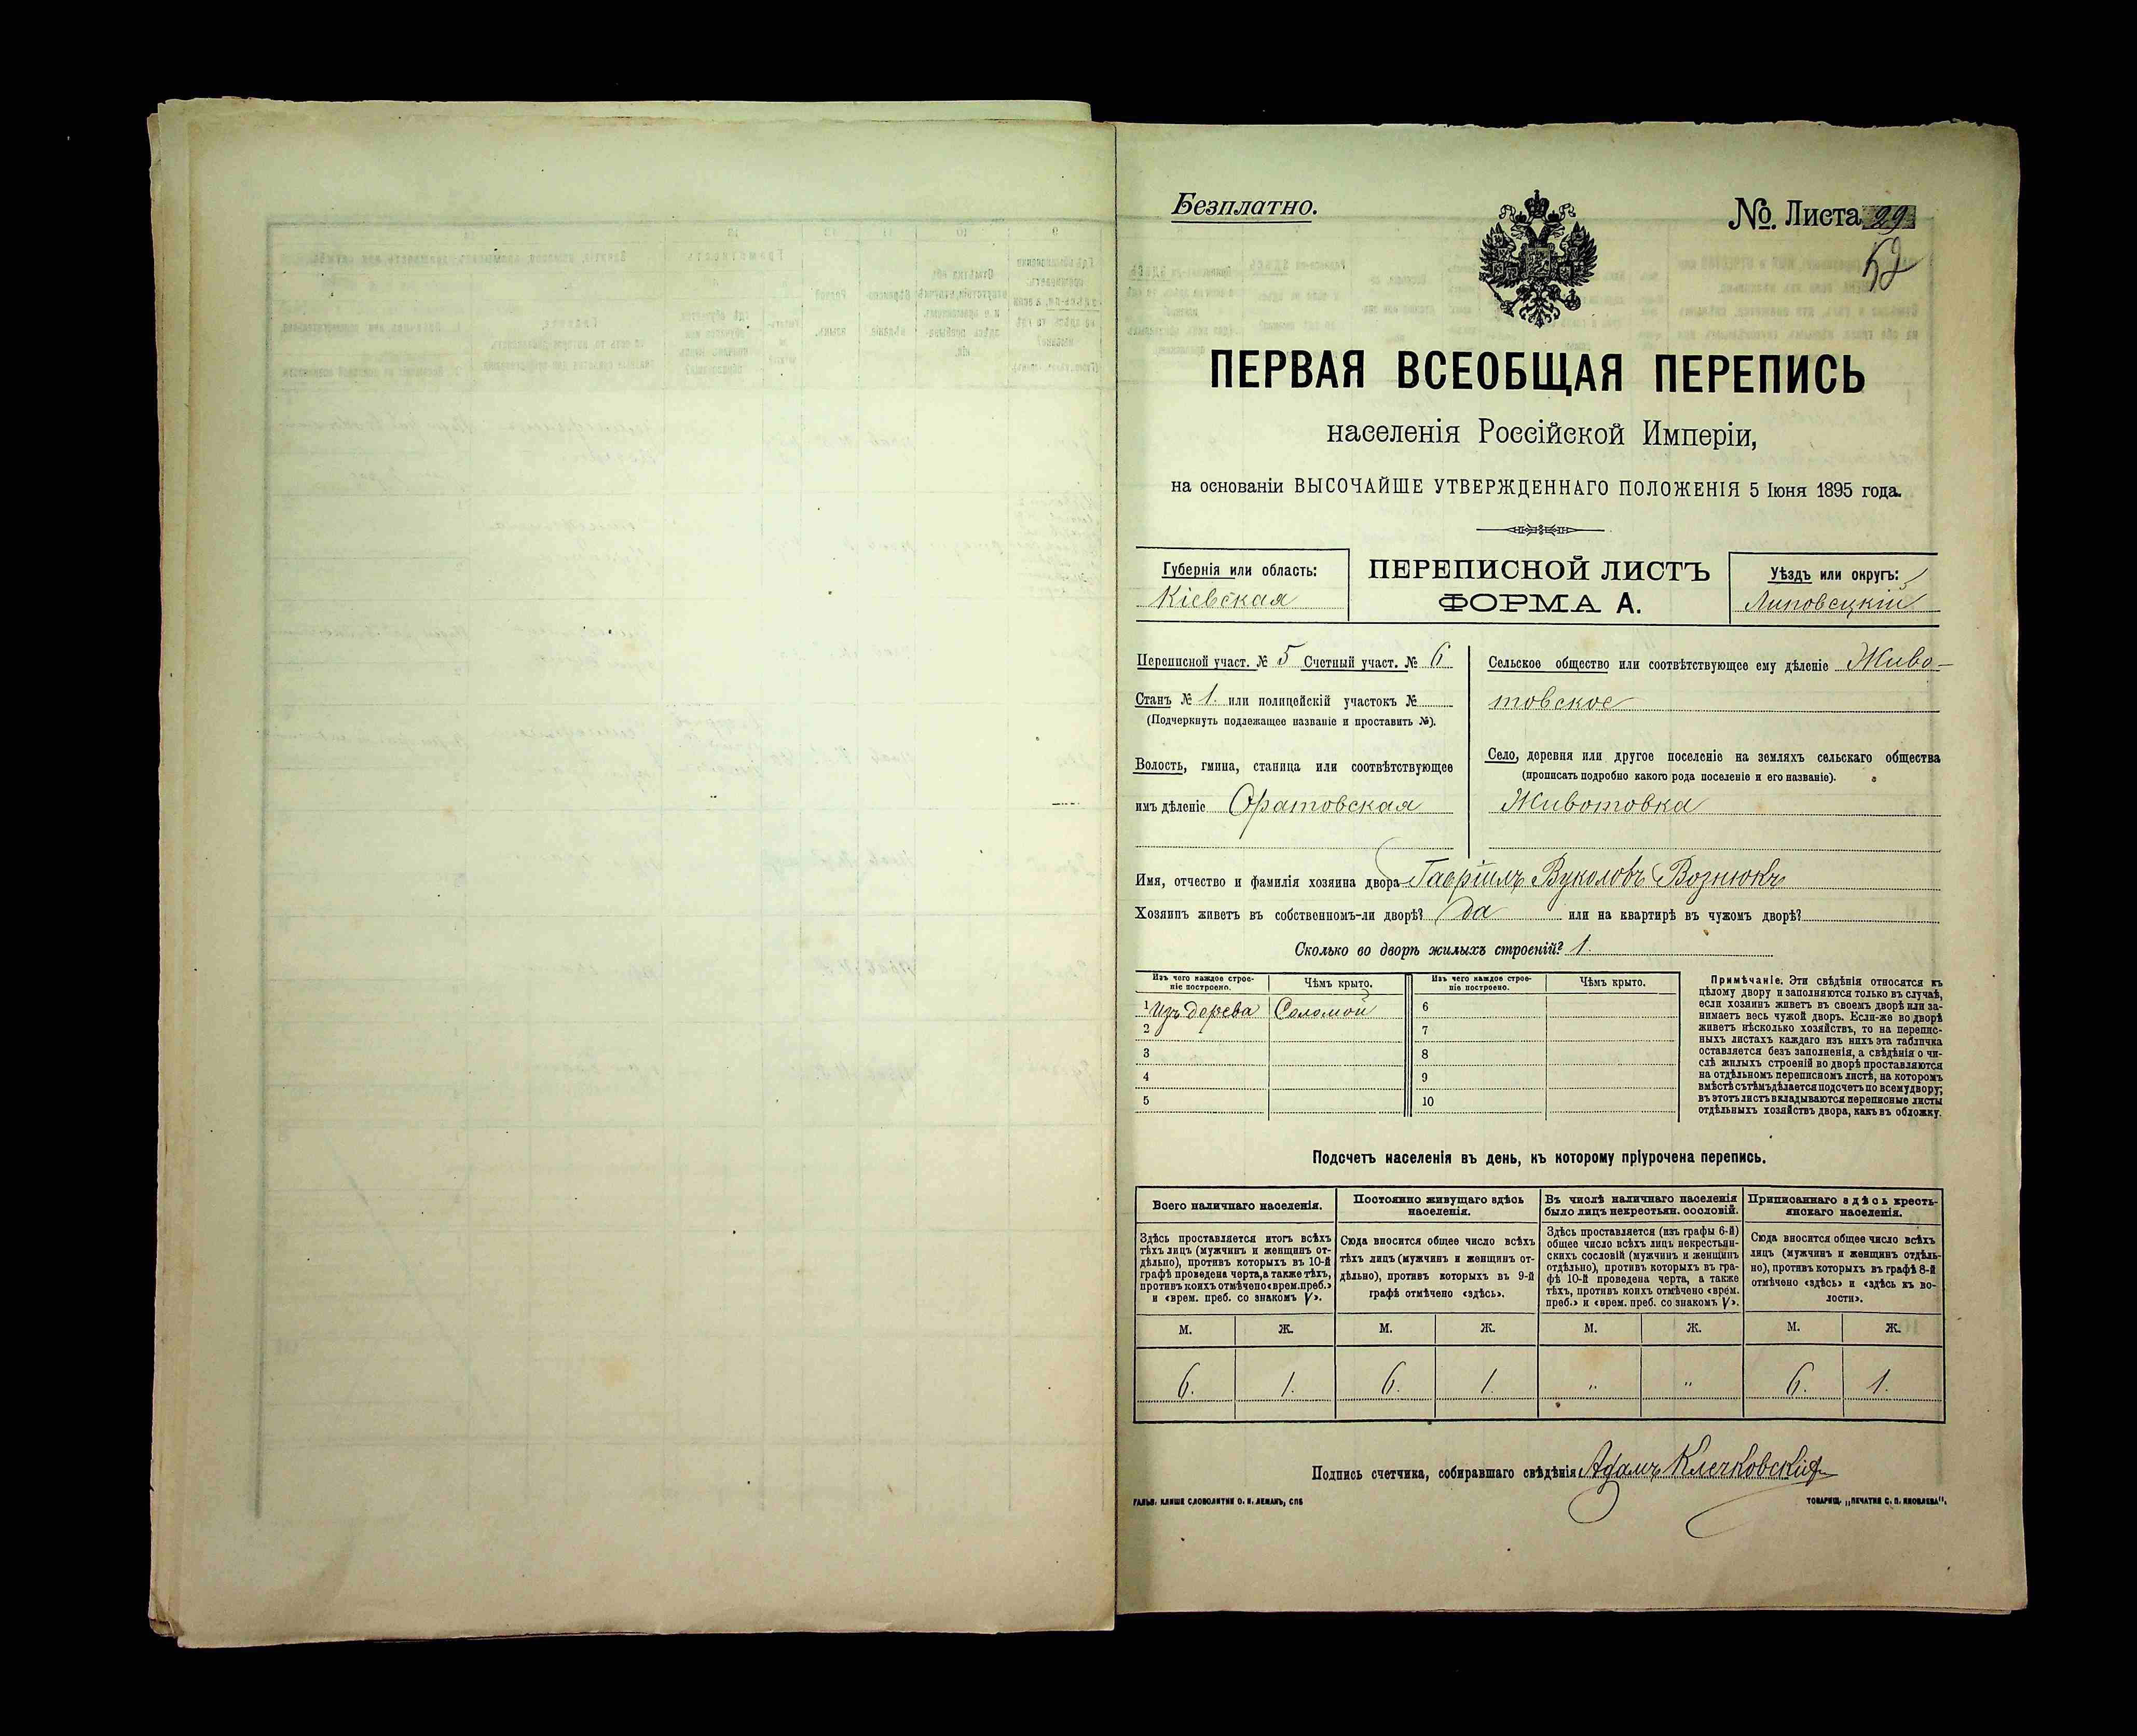 Безплатно.
№. Листа 29
52
ПЕРВАЯ ВСЕОБЩАЯ ПЕРЕПИСЬ
населенія Россійской Имперіи,
на основаніи ВЫСОЧАЙШЕ УТВЕРЖДЕННАГО ПОЛОЖЕНІЯ 5 Іюня 1895 года.
Губернія или область:
Кіевская
ПЕРЕПИСНОЙ ЛИСТЪ
ФОРМА А.
Уѣздъ или округъ:
Липовецкій
Переписной участ. № 5 Счетный участ. № 6
Станъ № 1. или полицейскій участокъ №
(Подчеркнуть подлежащее названіе и проставить №).
Волость, гмина, станица или соотвѣтствующее
имъ дѣленіе Оратовская
Сельское общество или соотвѣтствующее ему дѣленіе Живо-
товское
Село, деревня или другое поселеніе на земляхъ сельскаго общества
(прописать подробно какого рода поселеніе и его названіе).
Животовка
Имя, отчество и фамилія хозяина двора Гавріилъ Вуколовъ Вознюкъ
Хозяинъ живетъ въ собственномъ-ли дворѣ? Да или на квартирѣ въ чужомъ дворѣ?
Сколько во дворѣ жилыхъ строеній? 1.
Изъ чего каждое строе-
ніе построено.
Чѣмъ крыто.
Изъ чего каждое строе-
ніе построено.
Чѣмъ крыто.
1 Изъ дерева Соломой 6
2 7
3 8
4 9
5 10
Примѣчаніе. Эти свѣдѣнія относятся къ
цѣлому двору и заполняются только въ случаѣ,
если хозяинъ живетъ въ своемъ дворѣ или за-
нимаетъ весь чужой дворъ. Если-же во дворѣ
живетъ нѣсколько хозяйствъ, то на перепис-
ныхъ листахъ каждаго изъ нихъ эта табличка
оставляется безъ заполненія, а свѣдѣнія о чи-
слѣ жилыхъ строеній во дворѣ проставляются
на отдѣльномъ переписномъ листѣ, на которомъ
вмѣстѣ съ тѣмъ дѣлается подсчетъ по всему двору;
въ этотъ листъ вкладываются переписные листы
отдѣльныхъ хозяйствъ двора, какъ въ обложку.
Подсчетъ населенія въ день, къ которому пріурочена перепись.
Всего наличнаго населенія.
Здѣсь проставляется итогъ всѣхъ
тѣхъ лицъ (мужчинъ и женщинъ от-
дѣльно), противъ которыхъ въ 10-й
графѣ проведена черта, а также тѣхъ,
противъ коихъ отмѣчено «врем. преб.»
и «врем. преб. со знакомъ V».
Постоянно живущаго здѣсь
населенія.
Сюда вносится общее число всѣхъ
тѣхъ лицъ (мужчинъ и женщинъ от-
дѣльно), противъ которыхъ въ 9-й
графѣ отмѣчено «здѣсь».
Въ числѣ наличнаго населенія
было лицъ некрестьян. сословій.
Здѣсь проставляется (изъ графы 6-й)
общее число всѣхъ лицъ некрестьян-
скихъ сословій (мужчинъ и женщинъ
отдѣльно), противъ которыхъ въ гра-
фѣ 10-й проведена черта, а также
тѣхъ, противъ коихъ отмѣчено «врем.
преб.» и «врем. преб. со знакомъ V».
Приписаннаго здѣсь кресть-
янскаго населенія.
Сюда вносится общее число всѣхъ
лицъ (мужчинъ и женщинъ отдѣль-
но), противъ которыхъ въ графѣ 8-й
отмѣчено «здѣсь» и «здѣсь къ во-
лости».
М. Ж. М. Ж. М. Ж. М. Ж.
6. 1. 6. 1. " " 6. 1.
Подпись счетчика, собиравшаго свѣдѣнія Адамъ Клечковскій
ГАЛЬВ. КЛИШЕ СЛОВОЛИТНИ О. И. ЛЕМАНЪ, СПБ
ТОВАРИЩ. „ПЕЧАТНЯ С. П. ЯКОВЛЕВА".